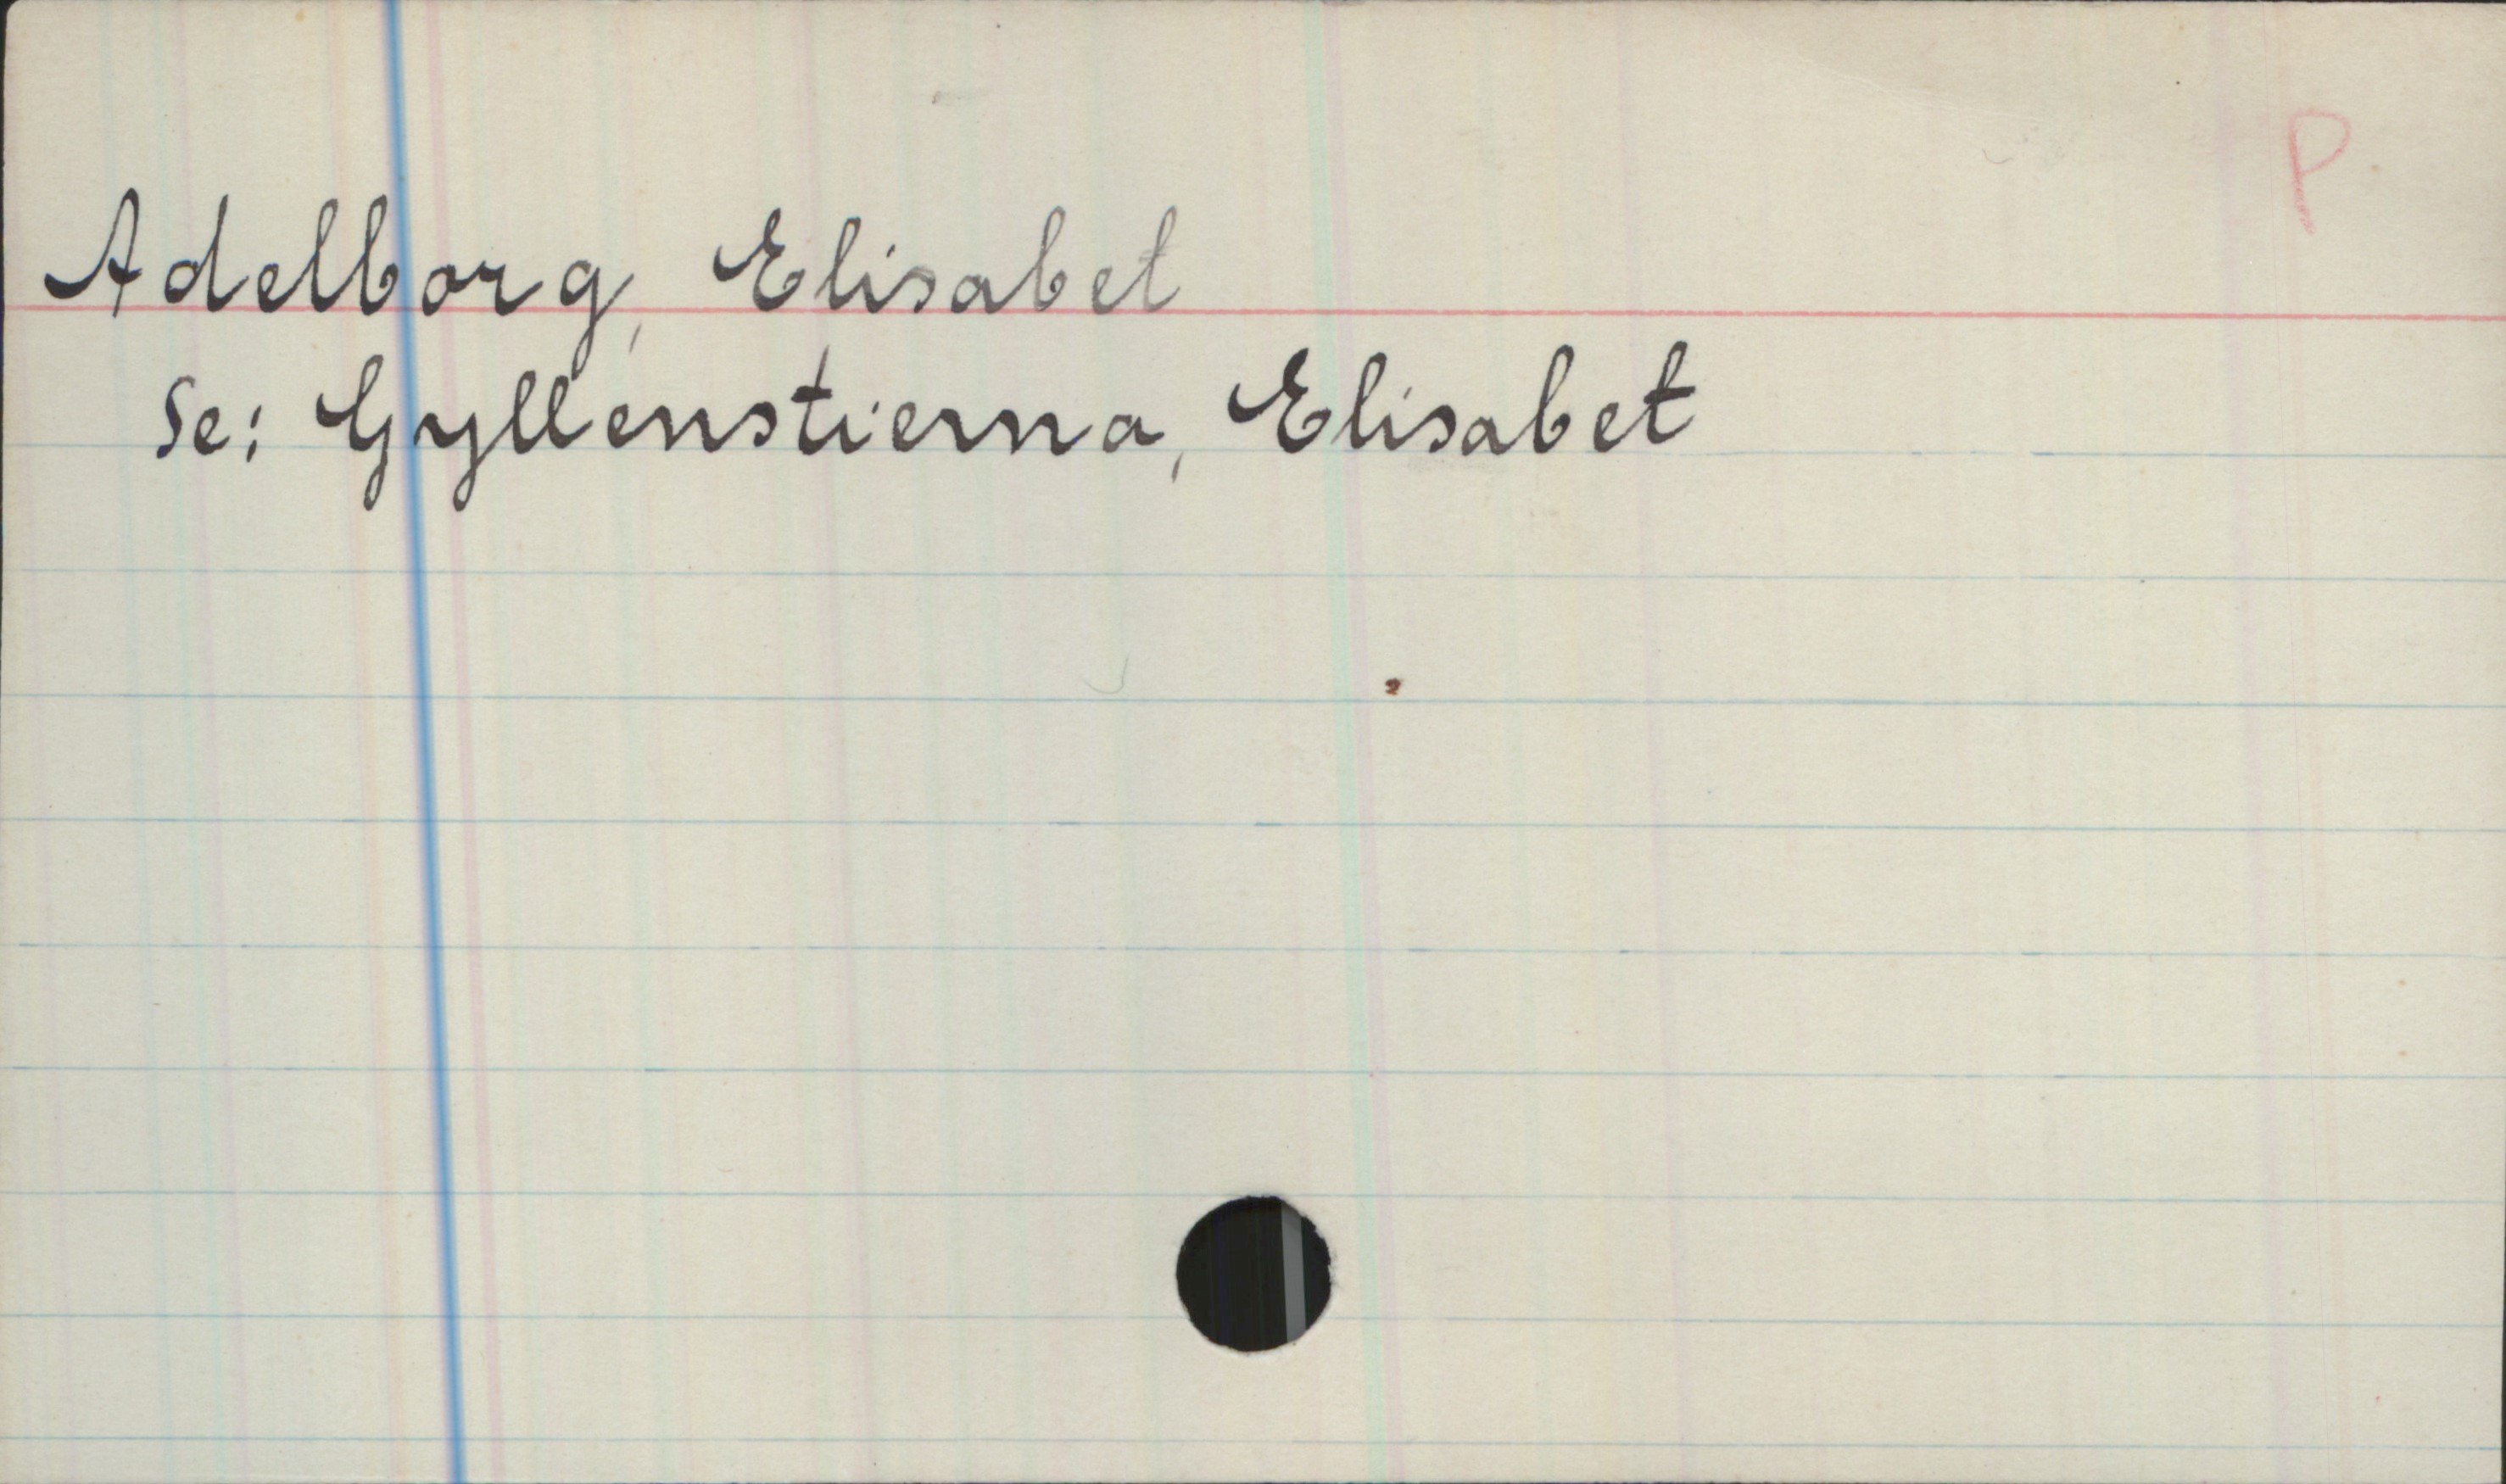 P
Adelborg, Elisabet
Se: Gyllenstierna, Elisabet